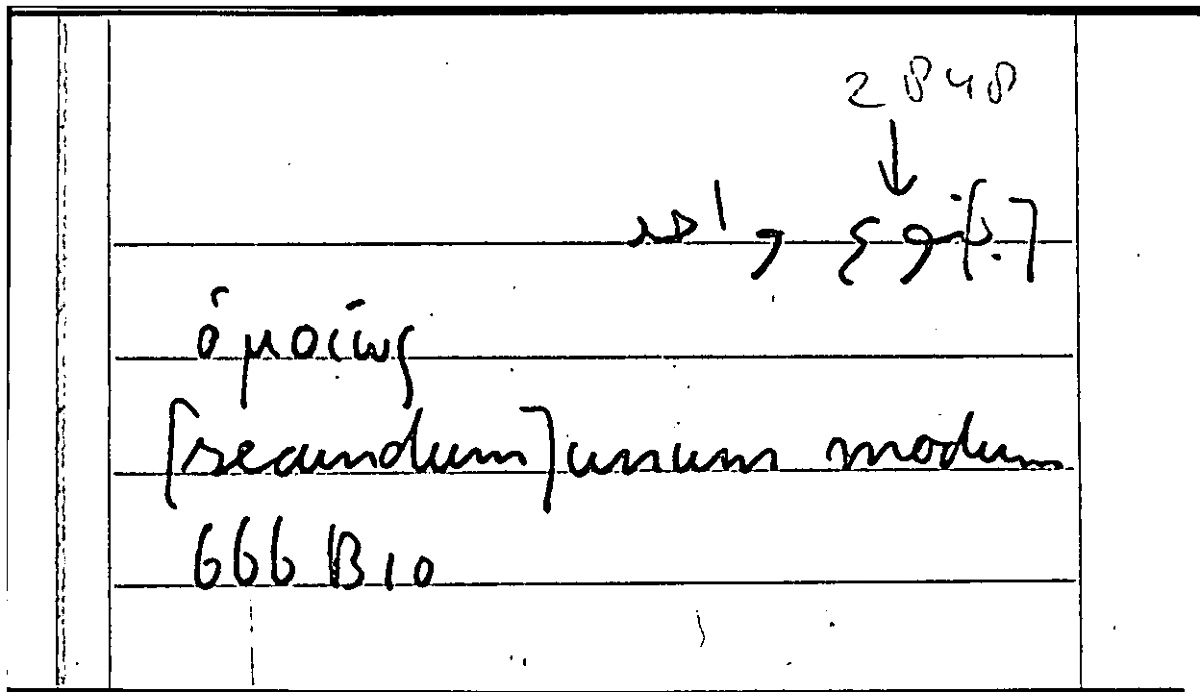 2848
↓
ὁμοίως
[secundum] unum modum
666 B10